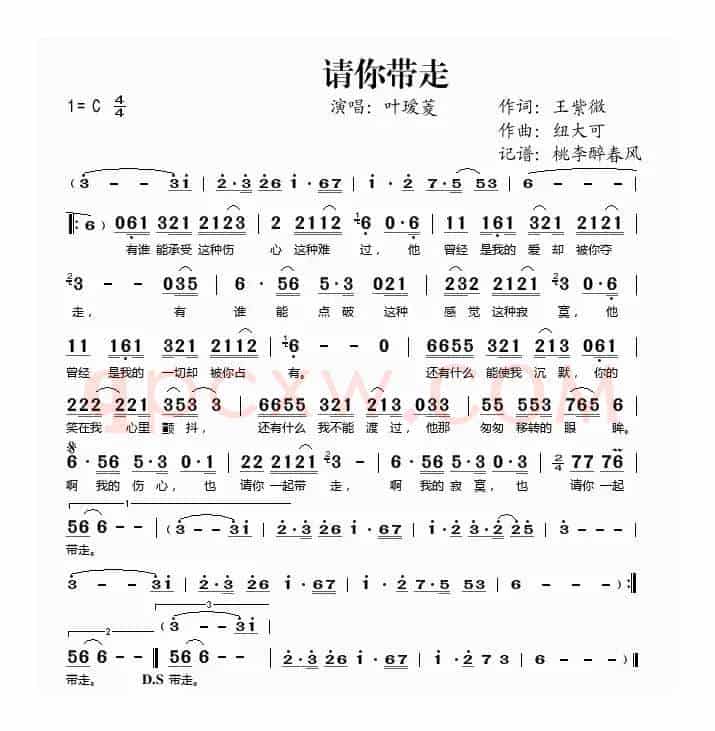 请你带走
1=C 4/4 演唱：叶瑷菱 作词：王紫微
作曲：纽大可
记谱：桃李醉春风
(3 - - 31 | 2·3 26 1·67 | 1·2 7·5 53 | 6 - - -
‖: 6) 061 321 2123 | 2 2112 6 0·6 | 11 161 321 2121 |
有谁 能承受 这种伤 心 这种难 过，他 曾经 是我的 爱却 被你夺
3 - - 035 | 6·56 5·3 021 | 232 2121 3 0·6 |
走， 有 谁 能 点 破 这种 感觉 这种寂 寞，他
11 161 321 2112 | 6 - - 0 | 6655 321 213 061 |
曾经 是我的 一切却 被你占 有。 还有什么 能使我 沉 默，你的
222 221 353 3 | 6655 321 213 033 | 55 553 765 6 |
笑在我 心里 颤 抖， 还有什么 我不能 渡 过，他那 匆匆 移转的 眼 眸。
6·56 5·3 0·1 | 22 2121 3 - | 6·56 5·3 0·3 | 2/4 77 76 |
啊 我的 伤 心， 也 请你 一起带 走， 啊 我的 寂 寞， 也 请你 一起
1
56 6 - - | (3 - - 31 | 2·3 26 1·67 | 1·2 3·2 25 | 3 - - -
带走。
3 - - 31 | 2·3 26 1·67 | 1·2 7·5 53 | 6 - - -) :‖
3
(3 - - 31 |
2
56 6 - - ‖ 56 6 - - | 2·3 26 1·67 | 1·2 7 3 | 6 - - -) ‖
带走。 D.S 带走。
qpcxw.com